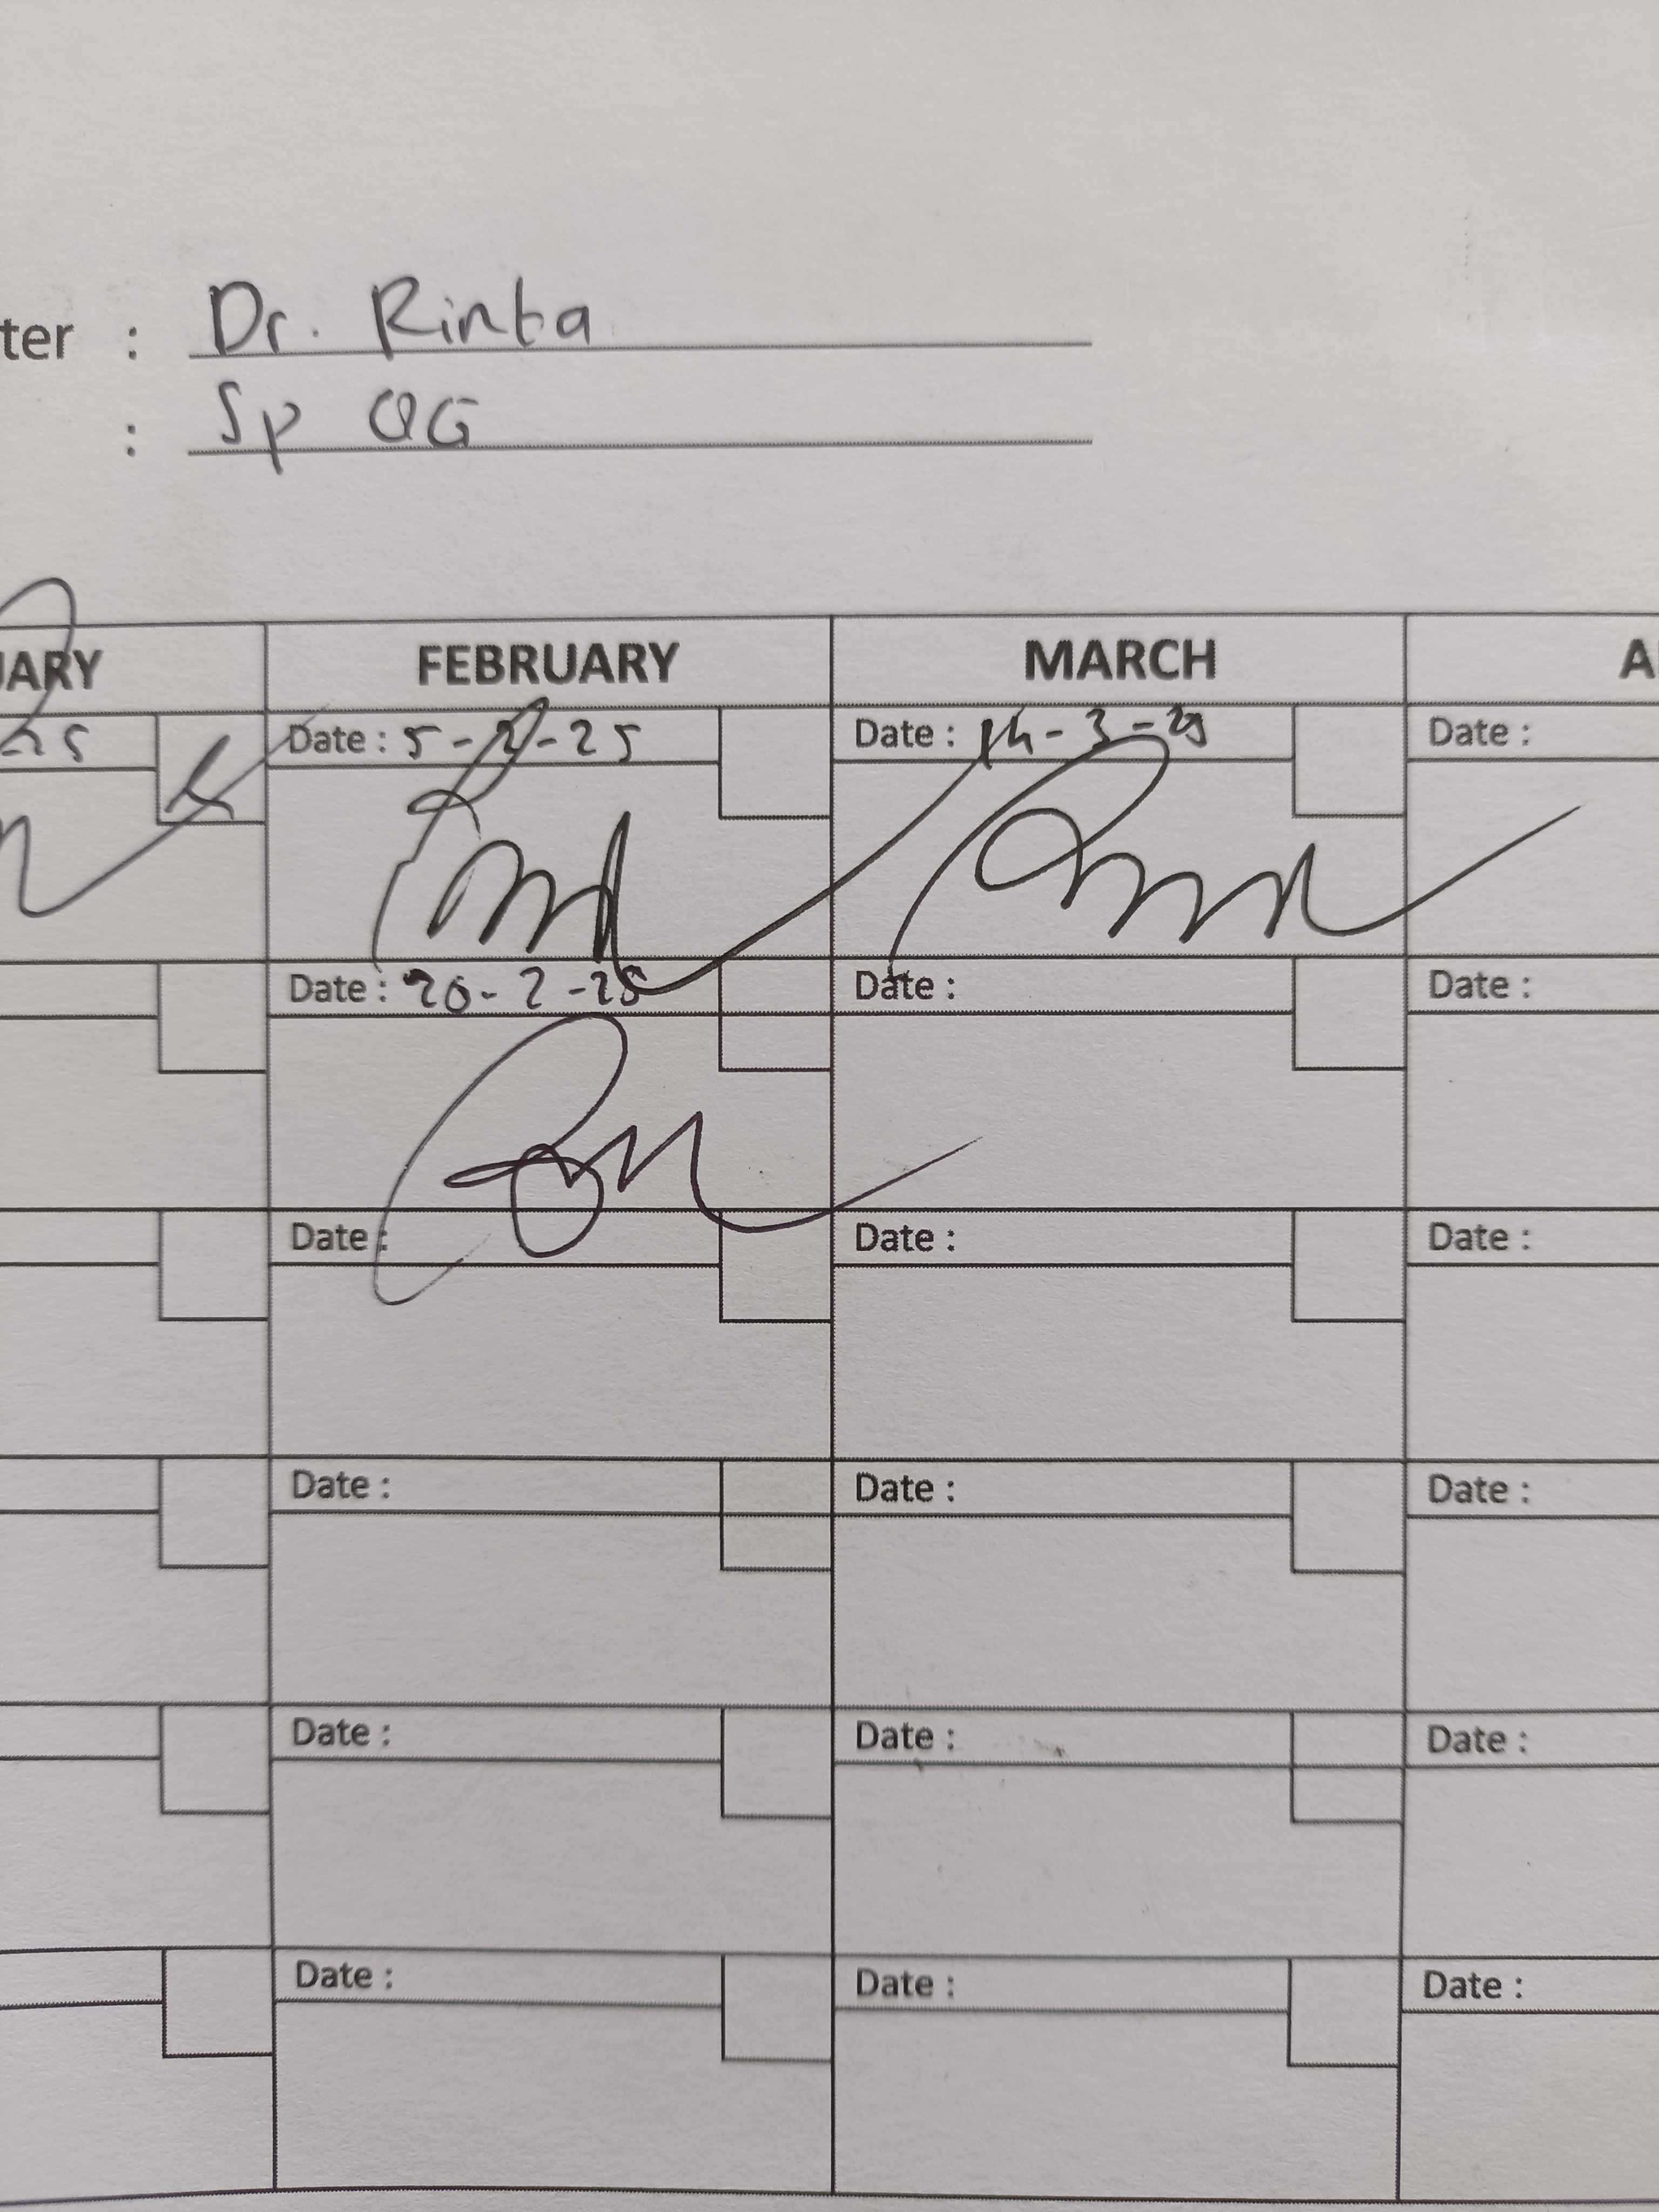 ter : Dr. Rinta
: Sp OG
UARY FEBRUARY MARCH A
25 Date : 5-2-25 Date : 14-3-25 Date :
Date : 20-2-25 Date : Date :
Date : Date : Date :
Date : Date : Date :
Date : Date : Date :
Date : Date : Date :